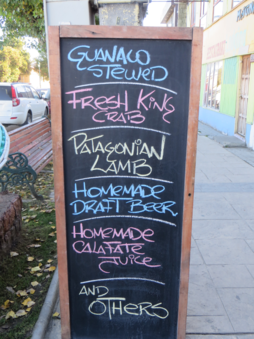 GUANACO
STEWED
FRESH KING
CRAB
PATAGONIAN
LAMB
HOMEMADE
DRAFT BEER
HOMEMADE
CALAFATE
JUICE
AND
OTHERS